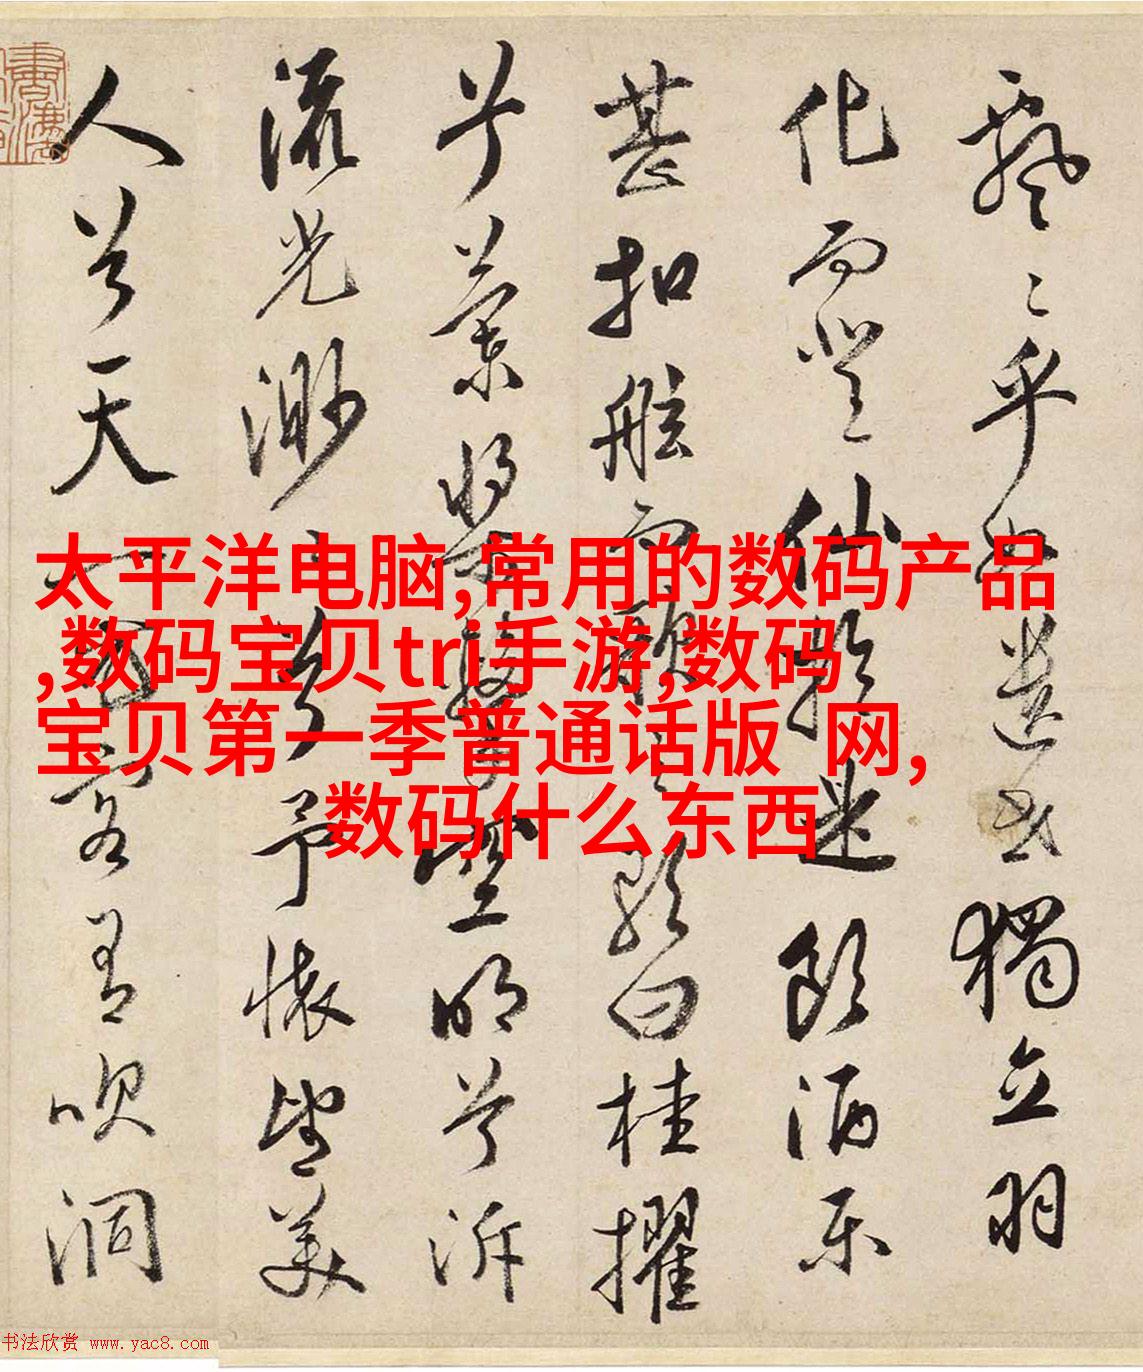 飄〻乎如遺世獨立羽
化而登仙於是飲酒樂
甚扣舷而歌之歌曰桂擢
兮蘭槳擊空明兮泝
流光渺〻兮予懷望美
人兮天一方客有吹洞
太平洋电脑,常用的数码产品
,数码宝贝tri手游,数码
宝贝第一季普通话版 网,
数码什么东西
书法欣赏 www.yac8.com